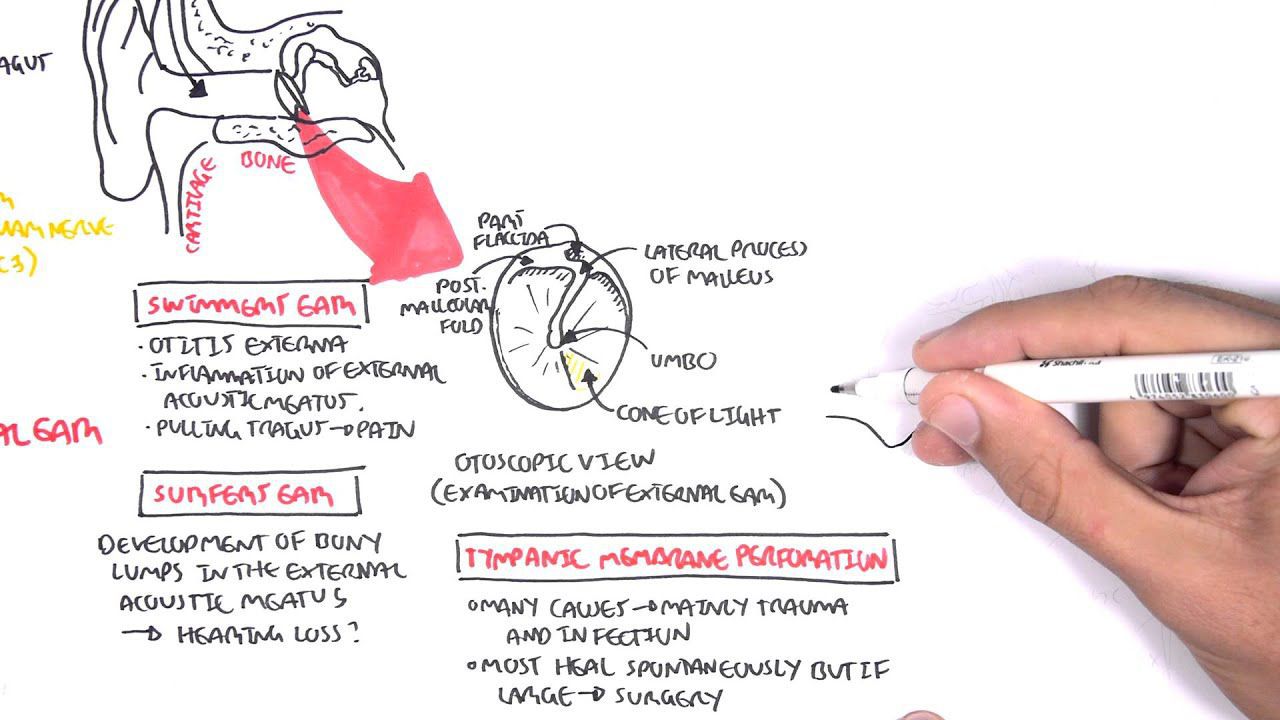 AGUT
BONE
CARTILAGE
NERVE
C3)
PART
FLACCIDA
LATERAL PROCESS
OF MALLEUS
POST.
MALLEOLAR
FOLD
UMBO
CONE OF LIGHT
SWIMMERS EAR
• OTITIS EXTERNA
• INFLAMMATION OF EXTERNAL
ACOUSTIC MEATUS.
• PULLING TRAGUS → PAIN
AL EAR
OTOSCOPIC VIEW
(EXAMINATION OF EXTERNAL EAR)
SURFERS EAR
DEVELOPMENT OF BONY
LUMPS IN THE EXTERNAL
ACOUSTIC MEATUS
→ HEARING LOSS?
TYMPANIC MEMBRANE PERFORATION
• MANY CAUSES → MAINLY TRAUMA
AND INFECTION
• MOST HEAL SPONTANEOUSLY BUT IF
LARGE → SURGERY